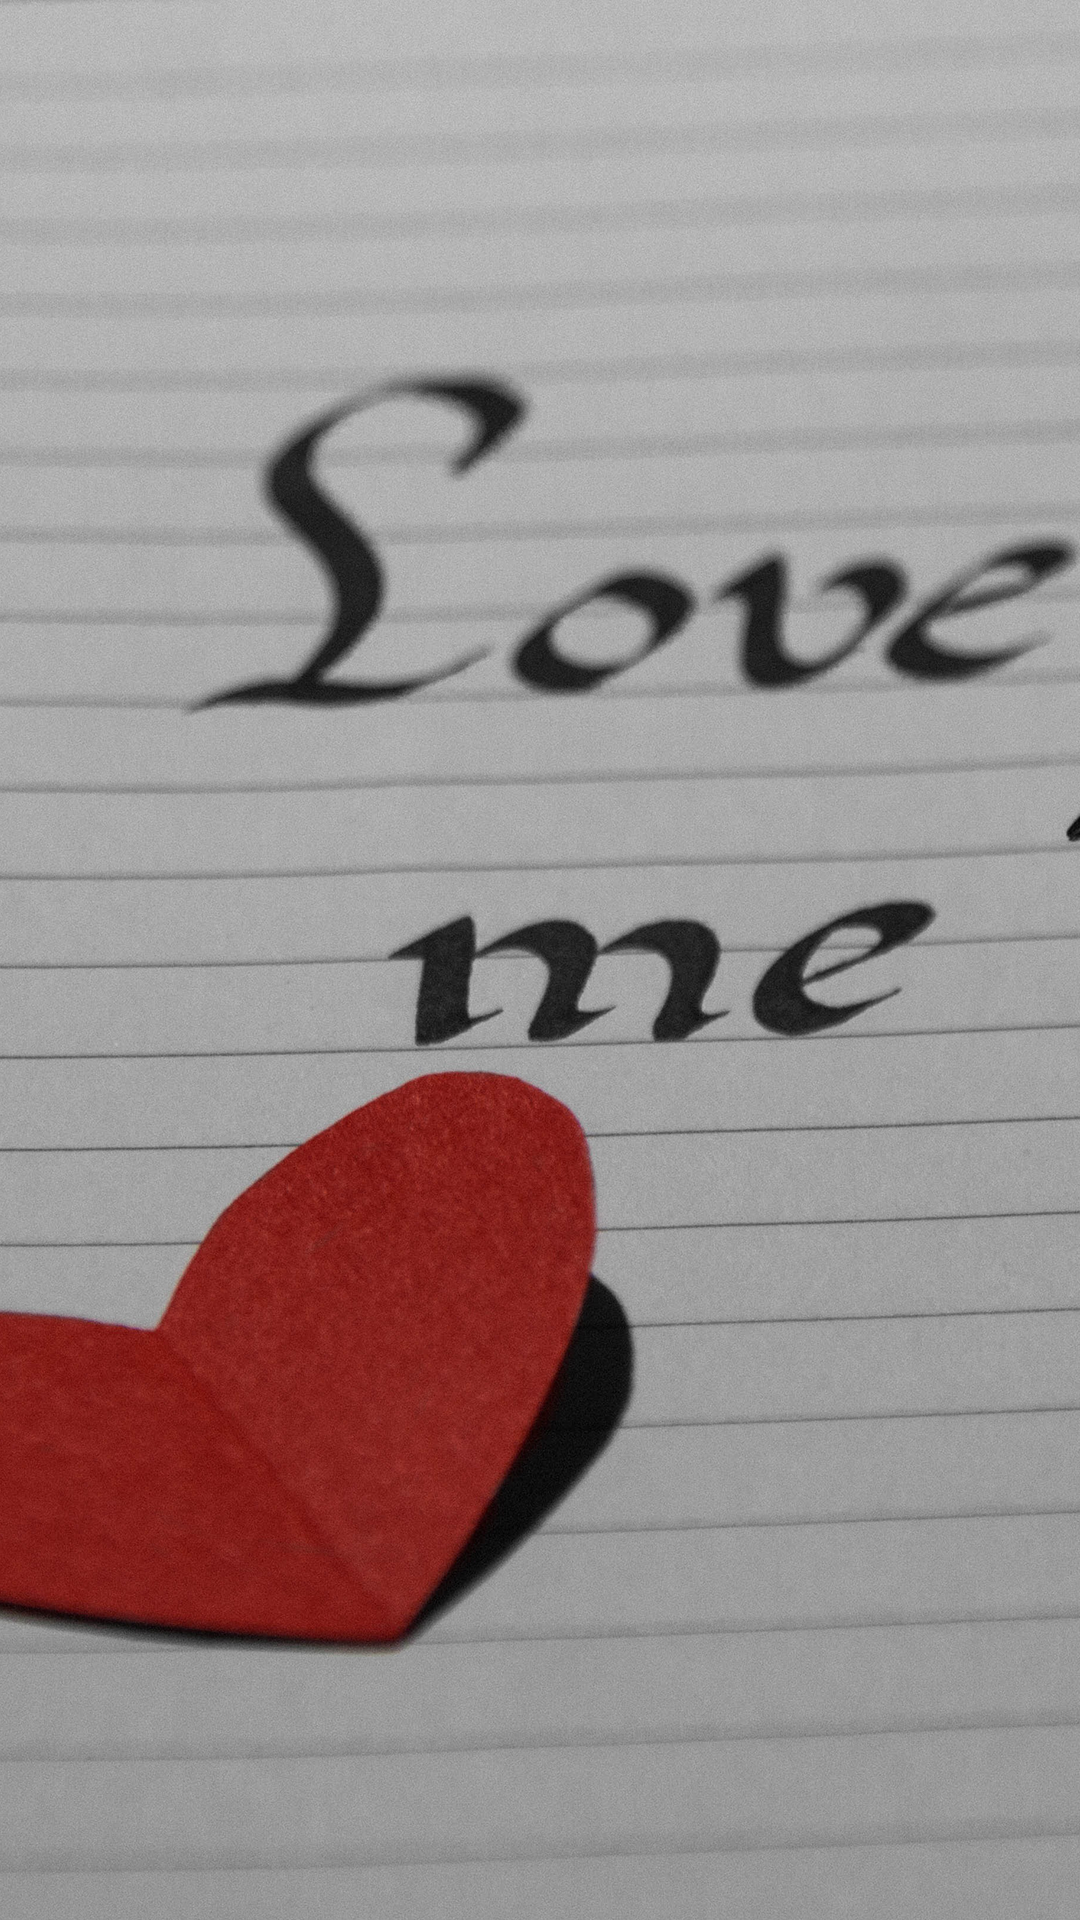 Love
me